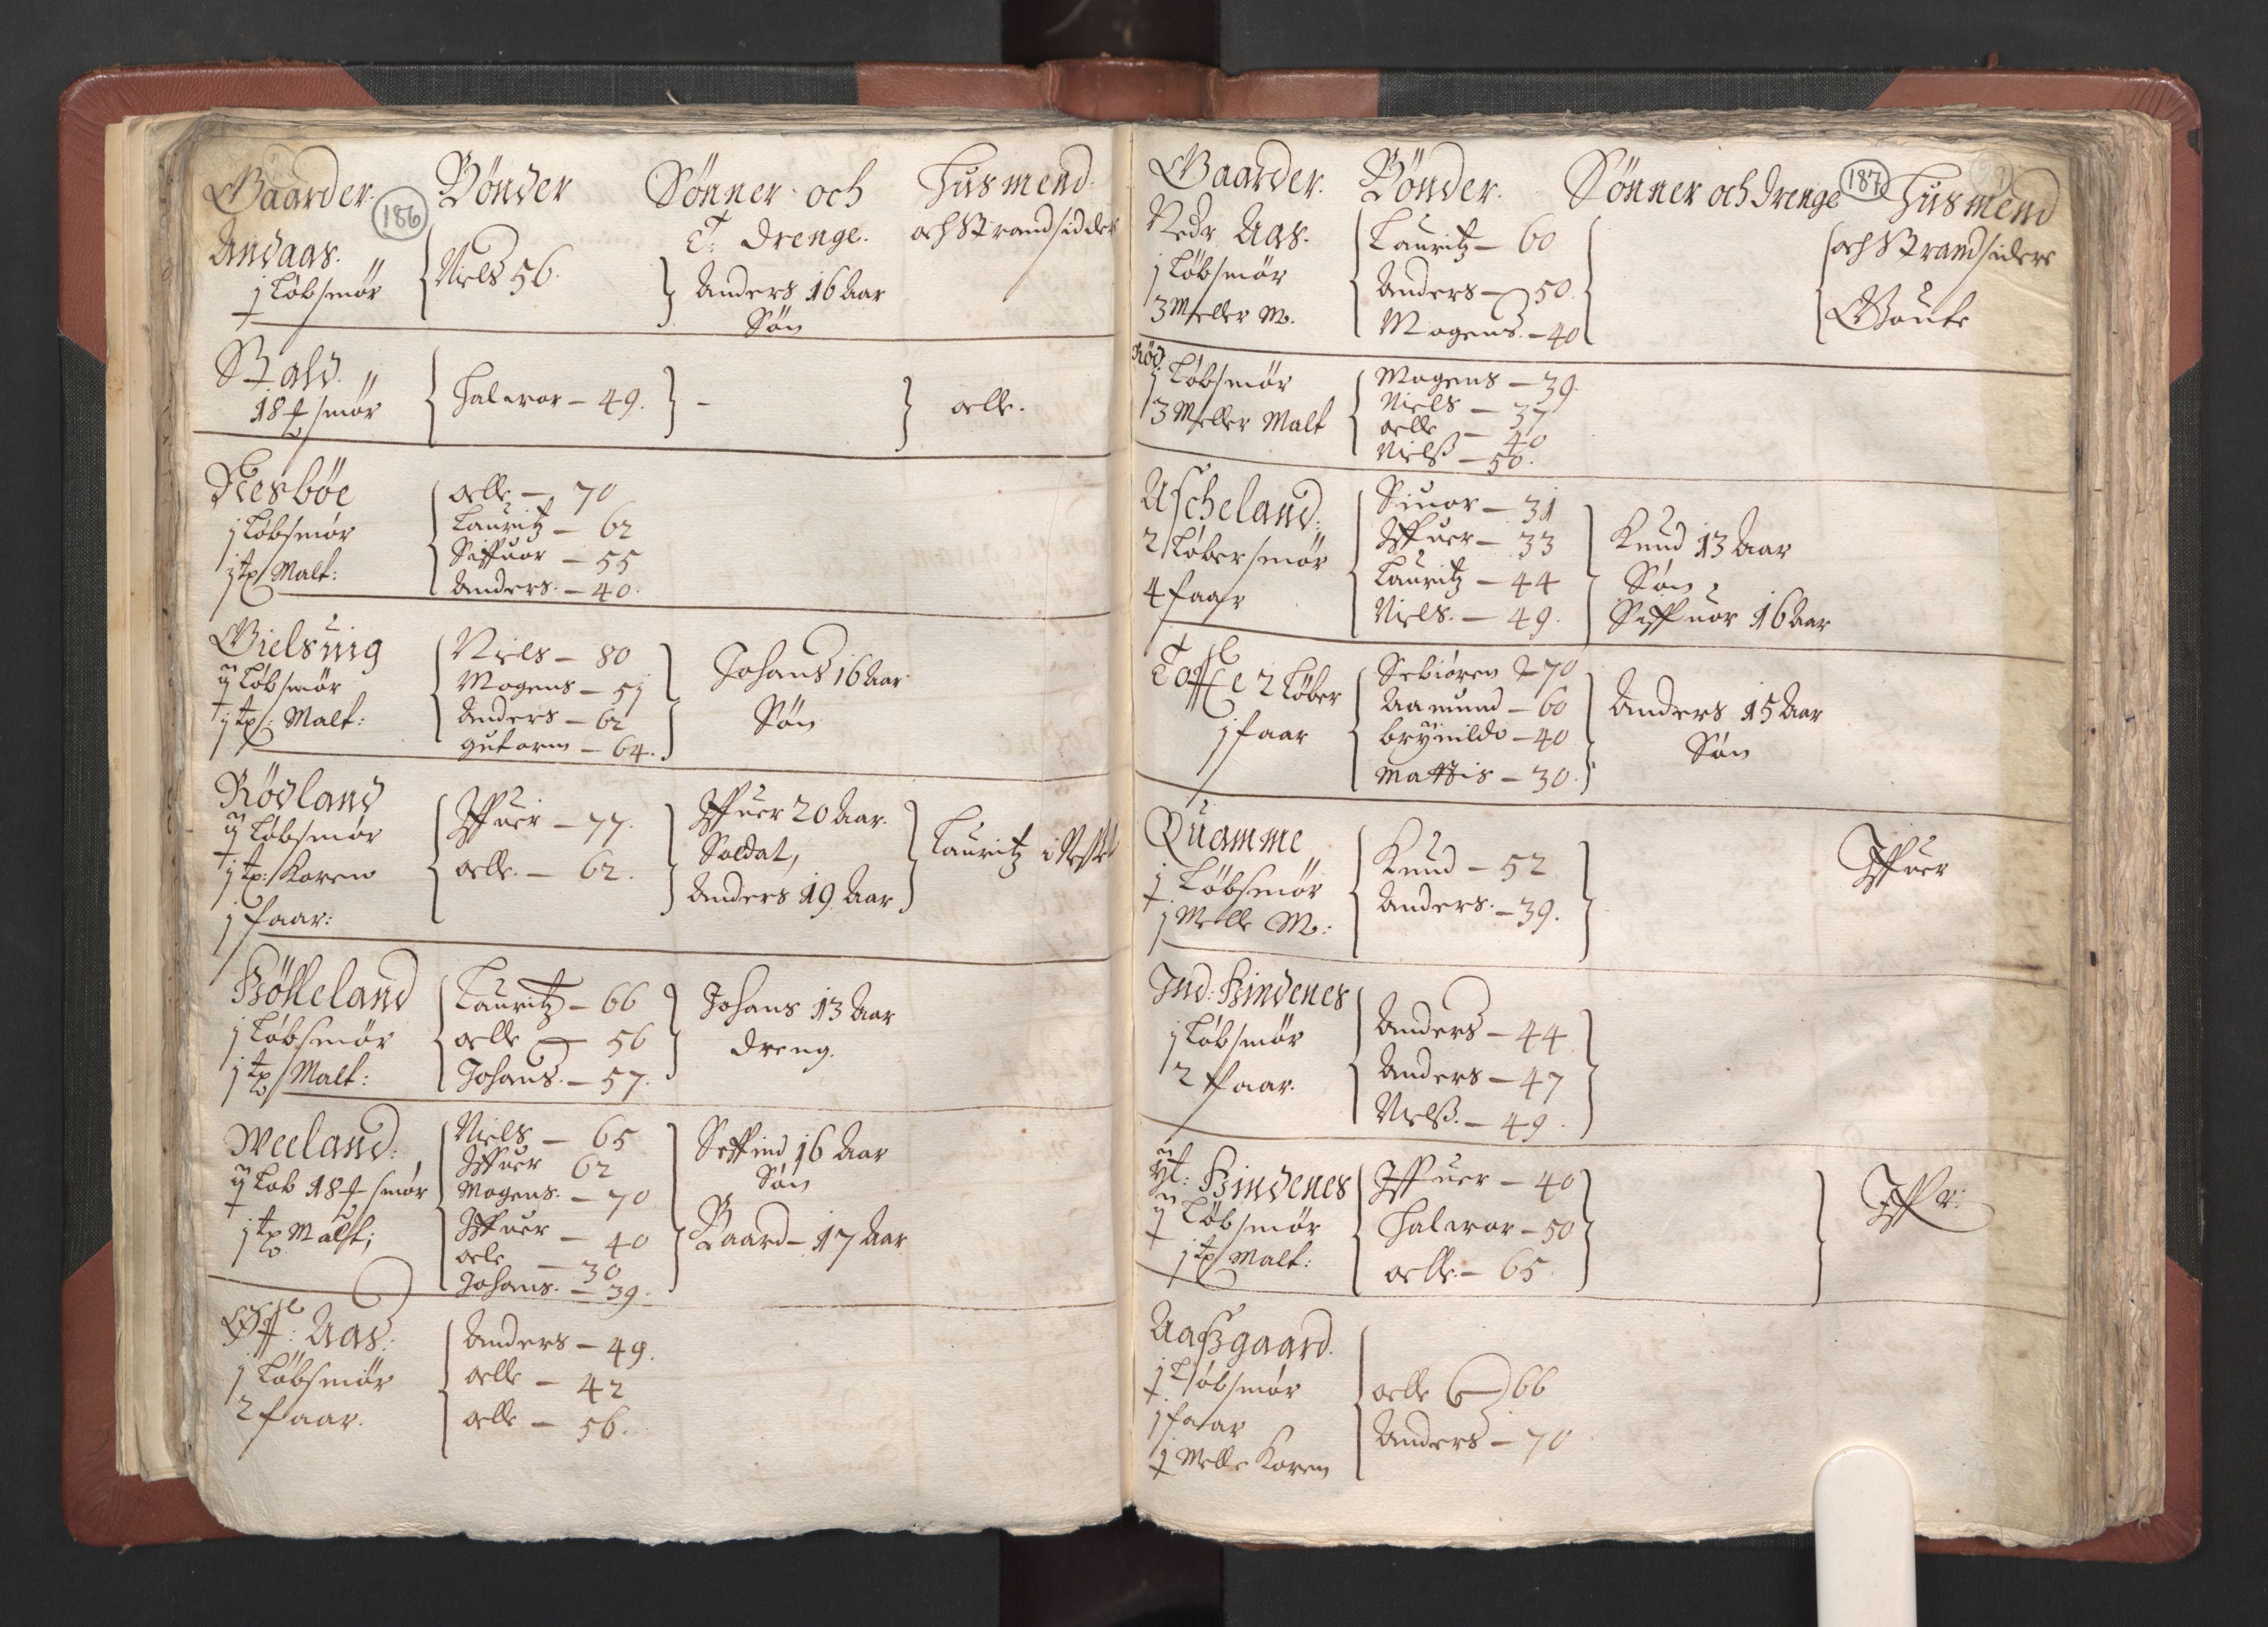 Gaarder. Bönder Sönner och Husmend
186
Drenge. och Strandsidder
Andaas.
j Löb smör
Niels 56.
Anders 16 Aar
Sön
Stald.
18 smör
Halwor - 49.
-
oelle.
Tiesböe
j Löbsmör
Malt:
oelle - 70
Lauritz - 62
Siffuor - 55
Anders - 40.
Gielsuig
Löb smör
Malt:
Niels - 80
Mogens - 51
Anders - 62
gutorm - 64.
Johans 16 Aar
Sön
Rödland
Löbsmör
Koren
j faar:
Iffuer - 77.
oelle - 62.
Iffuer 20 Aar.
Soldat,
Anders 19 Aar
Lauritz
Böckeland
j Löbsmör
j Malt:
Lauritz - 66
oelle - 56
Johans - 57.
Johans 13 Aar
dreng.
Meeland:
Löb 18 smör
Malt;
Niels - 65
Iffuer 62
Mogens. - 70
Iffuer - 40
oele - 30
Johans. - 39.
16 Aar
Sön
Baard - 17 Aar
Aas.
j Löbsmör
2 faar.
Anders - 49.
oelle - 42
oelle - 56.
Gaarder. Bönder. Sönner och Drenge 187 Husmend
och Strandsidere
Nedr Aas.
j Löbsmör
3 Meller M.
Lauritz - 60
Anders - 50.
Mogens. - 40
Goute
Röd.
j Löbsmör
3 Meller Malt
Mogens - 39.
Niels - 37
oelle - 40
Nielß - 50.
Ascheland:
2 Löber smör
4 faar
Siuor - 31
Iffuer - 33
Lauritz - 44
Niels. - 49.
Knud 13 Aar
Sön
Siffuor 16 Aar
2 Löber
j faar
Sebiören - 70
Aamund - 60
brynildo - 40
Mattis - 30.
Anders 15 Aar
Sön
Quamme
Löbsmör
j Melle M:
Knud - 52
Anders - 39.
Iffuer
Ind: Bindenes
j Löbsmör
2 faar.
Anders - 44
Anders - 47
Nielß - 49.
Yt: Bindenes
Löbsmör
Malt:
Iffuer - 40
Halwor - 50
oelle - 65.
Iffr:
Aaßgaard.
Löbsmör
j faar
Melle Koren
oelle - 66
Anders - 70